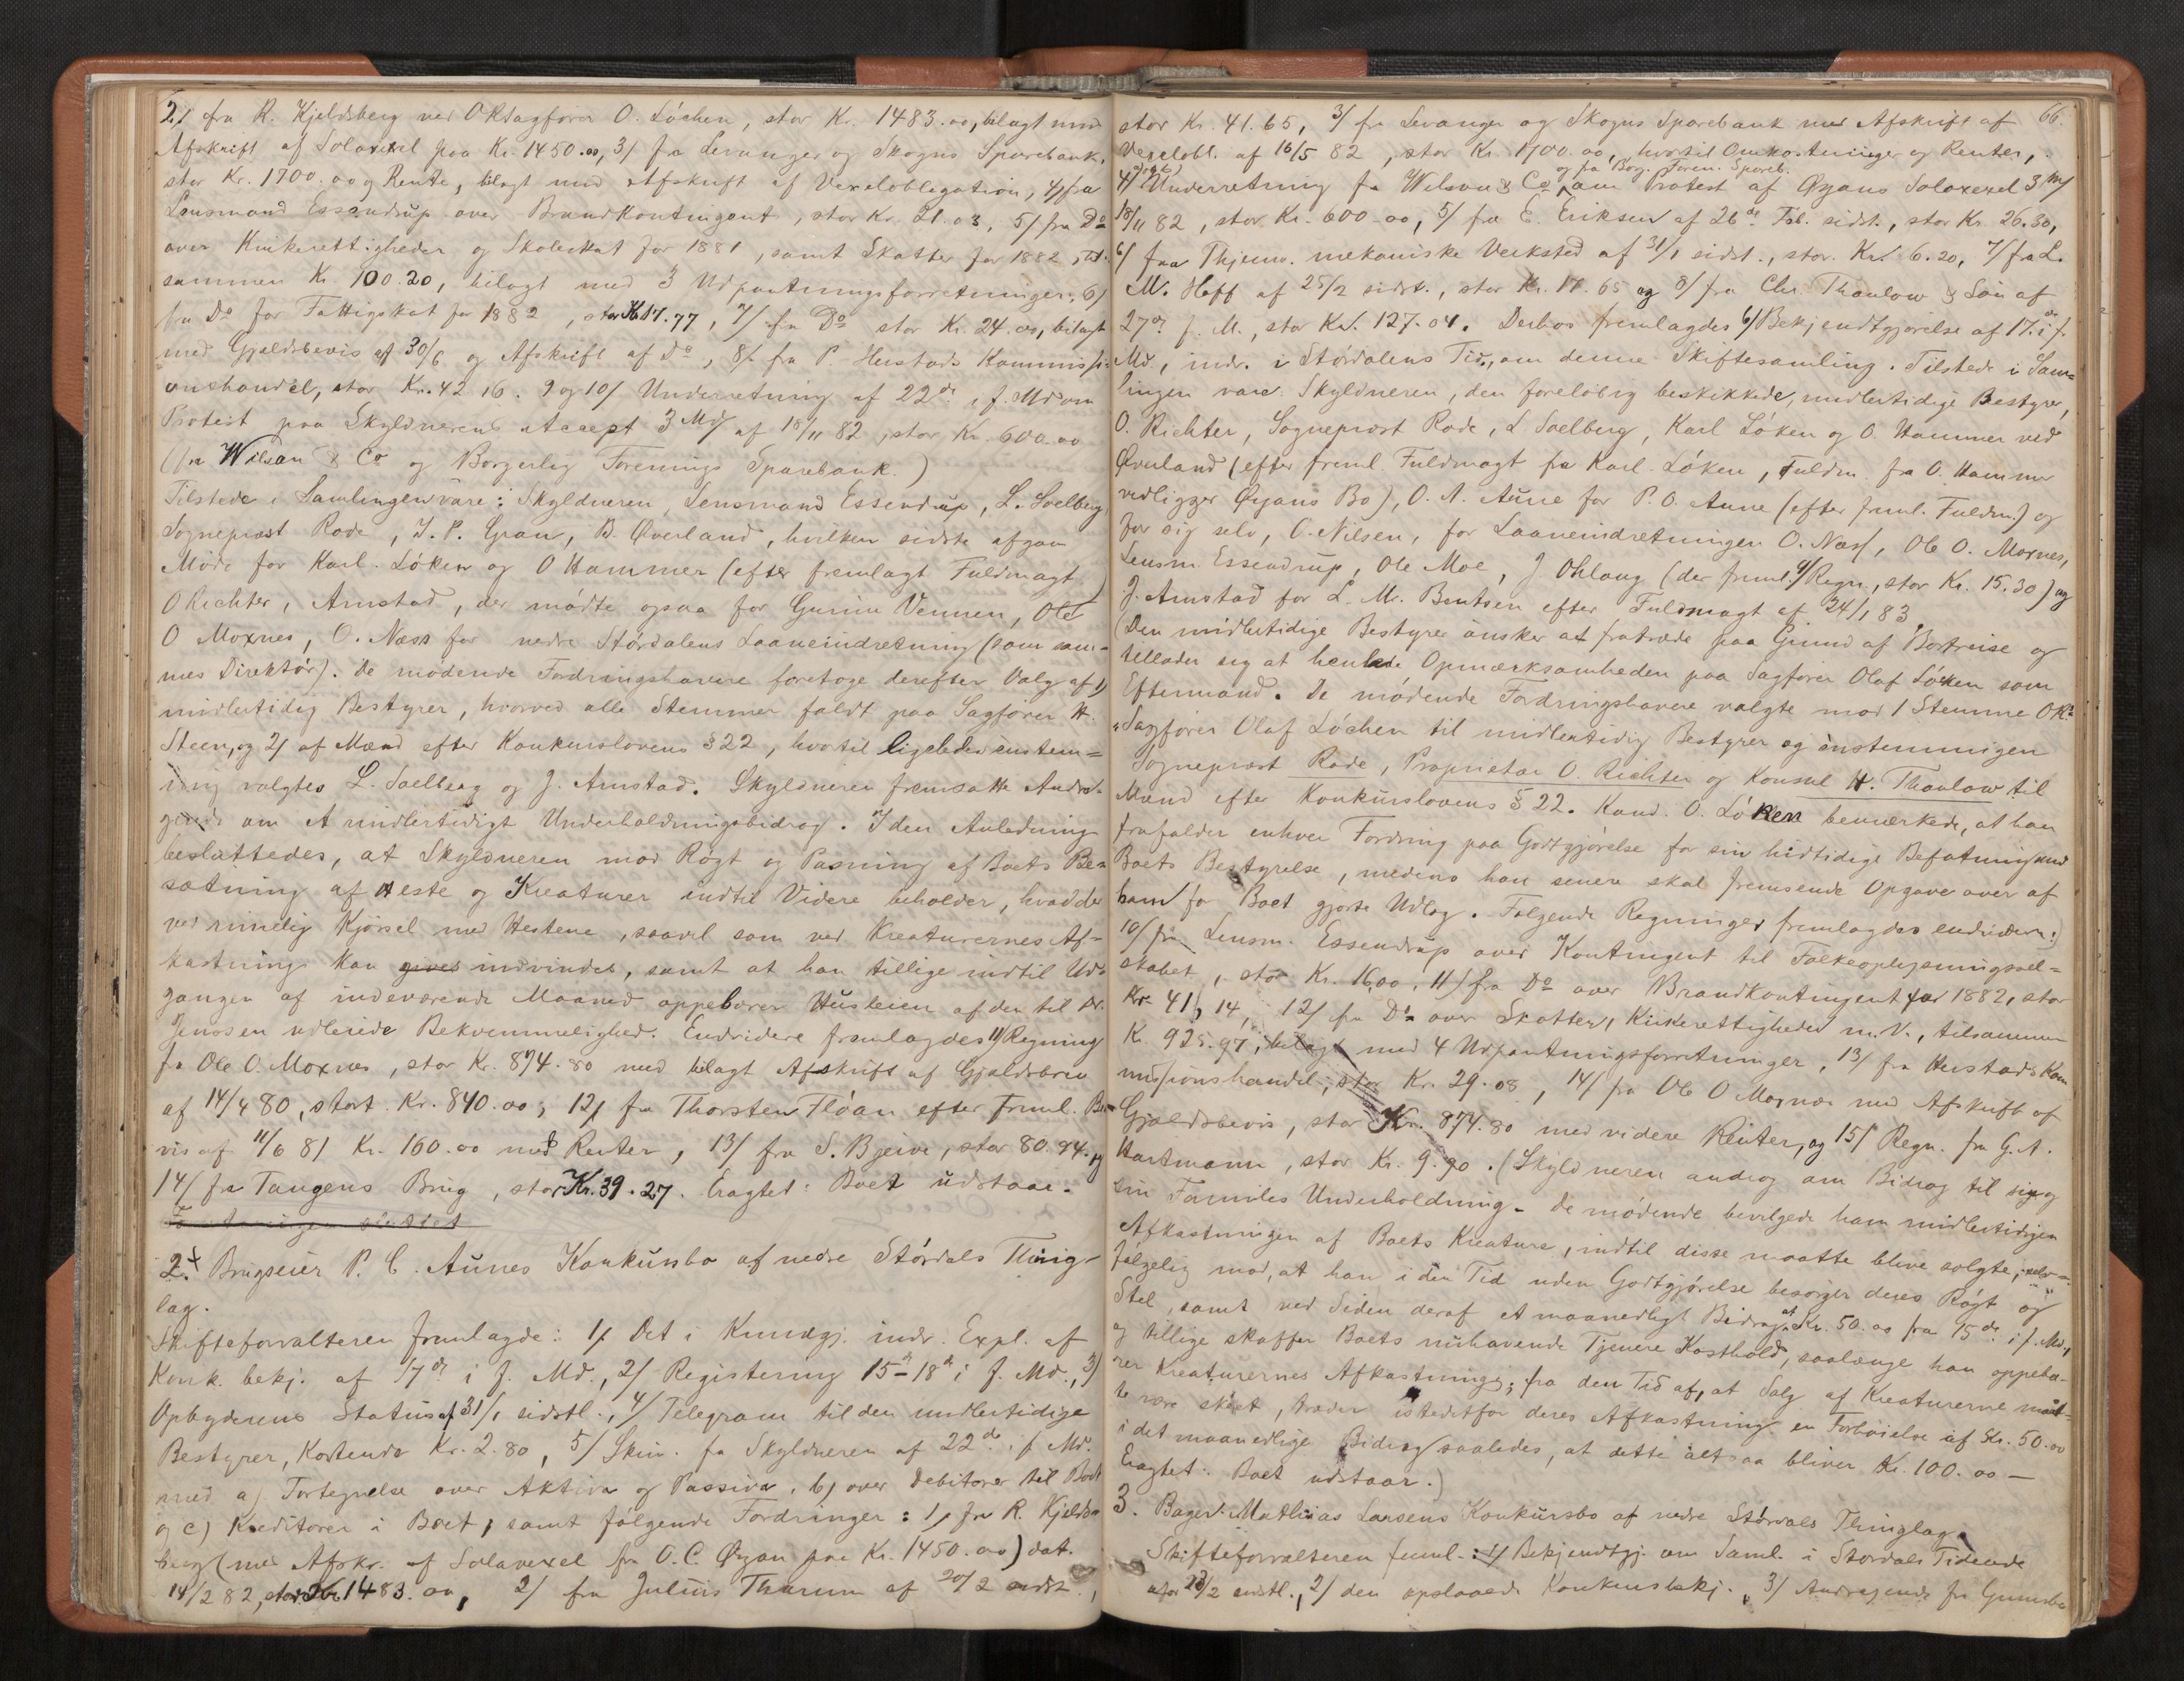 2/ fra R. Kjeldsberg ved ORsagfører O. Löchen, stor Kr. 1483.00, bilagt med
Afskrift af Solavexel paa Kr. 1450.00, 3/ fra Levanger og Skogns Sparebank,
stor Kr. 1700.00 og Rente, bilagt med Afskrift af Vexelobligation, 4/ fra
Lensmand Essendrup over Brandkontingent, stor Kr. 21.03, 5/ fra Do
over Kirkerettigheder og Skoleskat for 1881, samt Skatter for 1882, til-
sammen Kr 100.20, bilagt med 3 Udpantningsforretninger, 6/
fra Do for Fattigskat for 1882, stor Kr 17.77, 7/ fra Do stor Kr. 24.00, bilagt
med Gjældsbevis af 30/6 og Afskrift af Do, 8/ fra P. Hustads Kommissi-
onshandel, stor Kr. 42.16. 9 og 10/ Underretning af 22de i f. Md om
Protest paa Skyldnerens Accept 3 Md/ af 18/11 82, stor Kr. 600.00
(fra Wilson & Co og Borgerlig Forenings Sparebank.)
Tilstede i Samlingen vare: Skyldneren, Lensmand Essendrup, L. Soelberg
Sogneprest Rode, J. P. Gran, B. Øverland, hvilken sidste afgav
Møde for Karl Löken og O Hammer (efter fremlagt Fuldmagt)
O Richter, Arnstad, der mödte ogsaa for Gunim Vennen, Ole
O Moxnes, O. Næss for nedre Stördalens Laaneindretning (som sam-
mes Direktör). De mödende Fordringshavere foretoge derefter Valg af 1/
midlertidig Bestyrer, hvorved alle Stemmer faldt paa Sagförer H.
Steen, og 2/ af Mænd efter Konkurslovens § 22, hvortil ligeledes enstem=
mig valgtes L. Soelberg og J. Arnstad. Skyldneren fremsatte Andra-
gende om et midlertidigt Underholdningsbidrag. I den Anledning
besluttedes, at Skyldneren mod Rögt og Pasning af Boets Be-
sætning af Heste og Kreaturer indtil Videre beholder, hvad der
ved rimelig Kjörsel med Hestene, saavel som ved Kreaturernes Af-
kastning kan gives indvindes, samt at han tillige indtil Ud-
gangen af indeværende Maaned oppebærer Husleien af den til Dr.
Jenssen udleiede Bekvemmelighed. Endvidere fremlagdes 11/ Regning
fra Ole O. Moxnes, stor Kr. 874.80 med bilagt Afskrift af Gjældsbrev
af 14/4 80, stort Kr. 840.00, 12/ fra Thorsten Flöan efter freml. Be-
vis af 11/6 81 Kr. 160.00 med Renter, 13/ fra S. Bjerve, stor 80.94. og
14/ fra Tangens Brug, stor Kr. 39.27. Eragtet: Boet udstaar.
Forretningen sluttet
2. Brugseier P. C. Aunes Konkursbo af nedre Stördals Thing-
lag.
Skifteforvalteren fremlagde: 1/ Det i Kundgj. indr. Expl. af
Konk. bekj. af 17de i f. Md., 2/ Registering 15-18de i f. Md., 3/
Opbyderens Status af 31/1 sidstl., 4/ Telegram til den midlertidige
Bestyrer, kostende Kr. 2.80, 5/ Skriv. fra Skyldneren af 22de i f. Md.
med a) Fortegnelse over Aktiva og Passiva, b) over Debitorer til Boet
og c) Kreditorer i Boet, samt fölgende Fordringer: 1/ fra R. Kjelds-
berg (med Afskr. af Solavexel fra O. C. Øyan paa Kr. 1450.00) dat.
14/2 82, stor Kr 1483.00, 2/ fra Julius Tharum af 20/2 sidst.,
66.
stor Kr. 41.65, 3/ fra Levanger og Skogns Sparebank med Afskrift af
Vexelobl. af 16/5 82, stor Kr. 1700.00, hvortil Omkostninger og Renter,
og fra Borg. Foren. Spareb.
4/ Underretning fra Wilson & Co om Protest af Øyans Solavexel 3 M/
18/11 82, stor Kr. 600.00, 5/ fra E. Eriksen af 26de Feb. sidst., stor Kr. 26.30,
6/ fra Thjems. mekaniske Verksted af 31/1 sidst., stor Kr. 6.20, 7/ fra L.
M. Hoff af 25/2 sidst., stor Kr. 17.65 og 8/ fra Chr. Thaulow & Sön af
27de f. M., stor Kr. 127.04. Derhos fremlagdes 6/ Bekjendtgjörelse af 17de i f.
Md., indr. i Stördalens Tid., om denne Skiftesamling. Tilstede i Sam=
lingen vare: Skyldneren, den forelöbig beskikkede, midlertidige Bestyrer,
O. Richter, Sogneprest Rode, L Soelberg, Karl Löken og O. Hammer ved
Øverland (efter freml. Fuldmagt fra Karl Löken, Fuldm. fra O. Hammer
vedligger Øyans Bo), O. A. Aune for P. O. Aune (efter freml. Fuldm.) og
for sig selv, O. Nilsen, for Laaneindretningen O. Næss, Ole O. Moxnes,
Lensm. Essendrup, Ole Moe, J. Øhlang (der freml. 9/ Regn., stor Kr. 15.30) og
J. Arnstad for L. M. Bentsen efter Fuldmagt af 24/1 83.
(Den midlertidige Bestyrer önsker at fratræde paa Grund af Bortreise og
tillader sig at henlede Opmærksomheden paa Sagförer Olaf Löken som
Eftermand. De mödende Fordringshavere valgte mod 1 Stemme OR-
Sagförer Olaf Löchen til midlertidig Bestyrer og enstemmigen
Sogneprest Rode, Proprietær O. Richter og Konsul H. Thaulow til
Mænd efter Konkurslovens § 22. Kand. O. Löken bemærkede, at han
frafalder enhver Fordring paa Godtgjörelse for sin hidtidige Befatning med
Boets Bestyrelse, medens han senere skal fremsende Opgave over af
ham for Boet gjorte Udlæg. Fölgende Regninger fremlagdes endvidere:)
10/ fra Lensm. Essendrup over Kontingent til Folkeoplysningssel=
skabet, stor Kr. 16,00, 11/ fra Do over Brandkontingent for 1882, stor
Kr 41,14, 12/ fra Do over Skatter, Kirkerettigheder m. V., tilsammen
Kr. 925.97, bilagt med 4 Udpantningsforretninger, 13/ fra Hustads Kom
missionshandel, stor Kr. 29.08, 14/ fra Ole O Moxnes med Afskrift af
Gjældsbevis, stor Kr. 874.80 med videre Renter, og 15/ Regn. fra G. A.
Hartmann, stor Kr. 9.90. (Skyldneren androg om Bidrag til sig og
sin Families Underholdning. De mödende bevilgede ham midlertidigen
Afkastningen af Boets Kreature, indtil disse maatte blive solgte, selv-
fölgelig mod, at han i den Tid uden Godtgjörelse besörger deres Rögt og
Stel, samt ved Siden deraf et maanedligt Bidrag af Kr. 50.00 fra 15de i f. Md.,
og tillige skaffer Boets nuhavende Tjenere Kosthold, saalænge han oppebæ-
rer Kreaturernes Afkastning; fra den Tid af, at Salg af Kreaturerne maat-
te være skeet, træder istedetfor deres Afkastning en Forhöielse af Kr. 50.00
i det maanedlige Bidrag saaledes, at dette altsaa bliver Kr. 100.00 —
Eragtet: Boet udstaar.)
3. Bager Mathias Larsens Konkursbo af nedre Stördals Thinglag.
Skifteforvalteren freml.: 1/ Bekjendtgj. om Saml. i Stördals Tidende
for 23/2 sidstl., 2/ den opslaaede Konkursbekj., 3/ Andragende fra